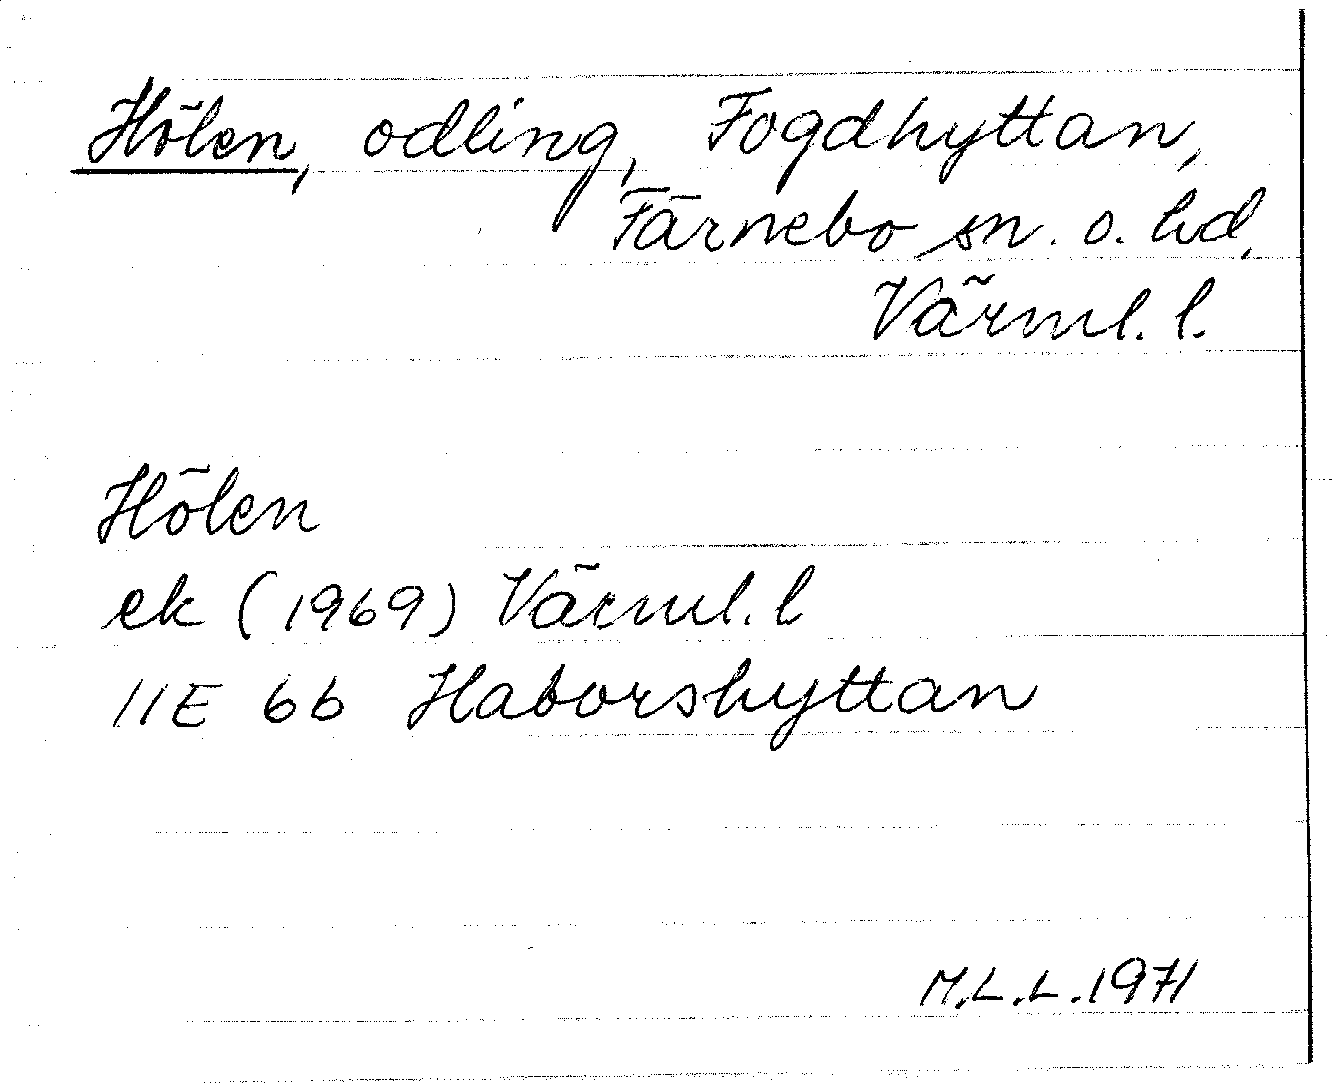 Hölen, odling, Fogdhyttan,
Färnebo sn. o. hd,
Värml. l.
Hölen
ek (1969) Värml. l
11E 6b Haborshyttan
M.L.L. 1971